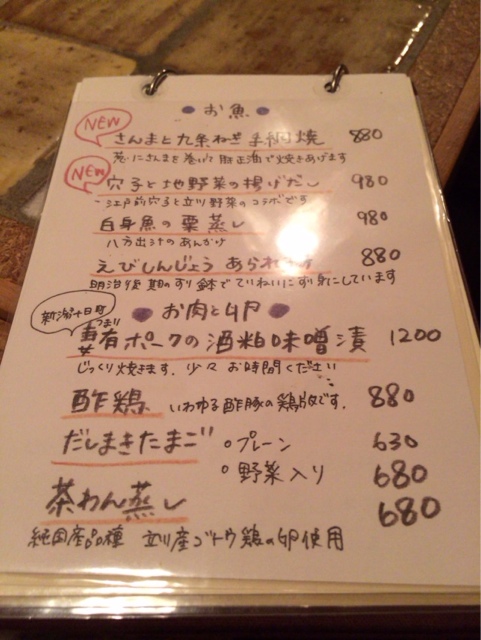 お魚
NEW
さんまと九条ねぎ 網焼 880
葱にさんまを巻いて 肝正油で焼きあげます
NEW
穴子と地野菜の揚げだし 980
江戸前穴子と立川野菜のコラボです
白身魚の栗蒸し 980
八方出汁のあんかけ
えびしんじょう あられ 880
明治後期のすり鉢でていねいにすり身にしています
お肉と卵
新潟十日町
つまり
妻有ポークの酒粕味噌漬 1200
じっくり焼きます。少々お時間ください
酢鶏 いわゆる酢豚の鶏版です。 880
だしまきたまご プレーン 630
野菜入り 680
茶わん蒸し 680
純国産品種 立川産ゴトウ鶏の卵使用